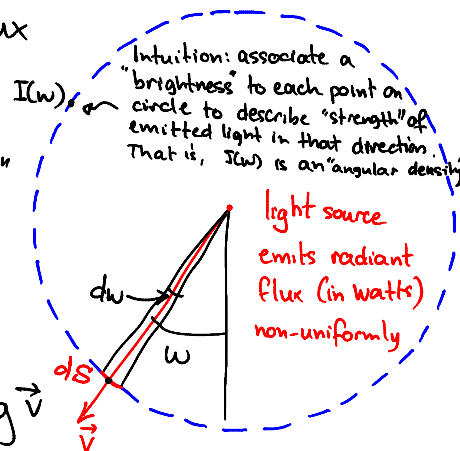 ux
Intuition: associate a
"brightness" to each point on
I(w)
circle to describe "strength" of
emitted light in that direction.
That is, I(w) is an "angular density
"
light source
emits radiant
flux (in watts)
non-uniformly
dw
w
dS
g v
v